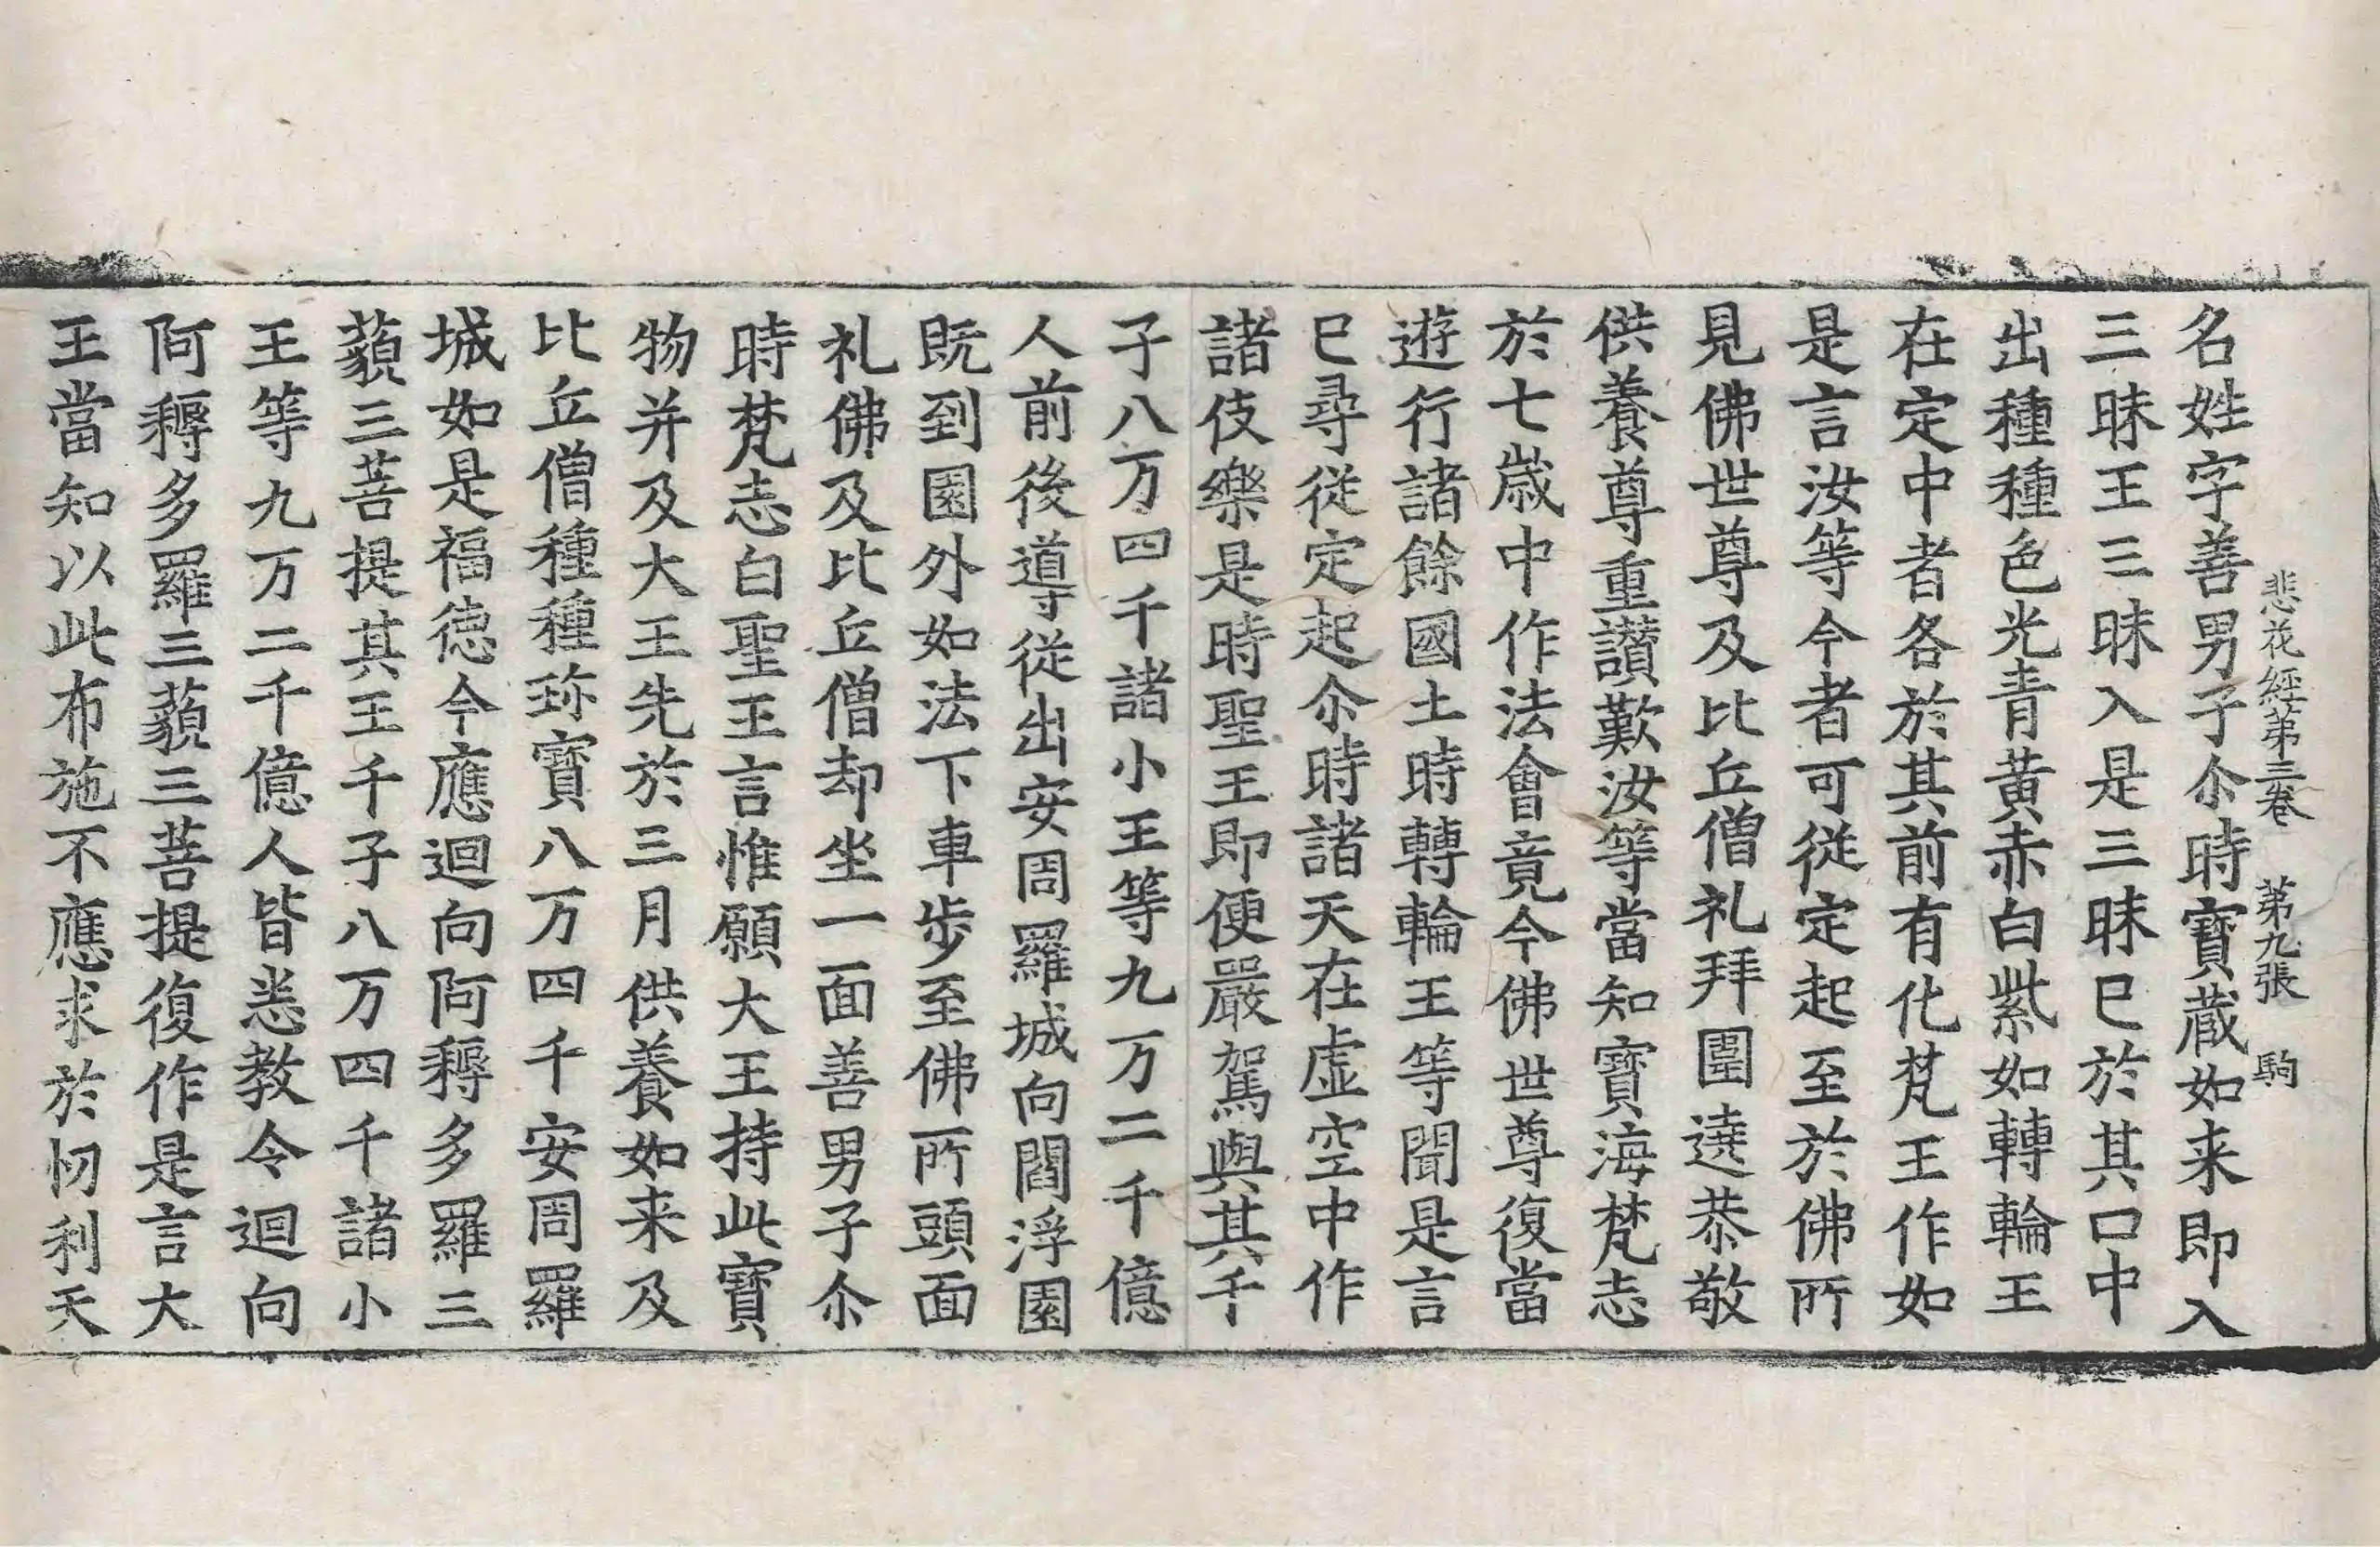 悲花經第三卷　第九張　駒
名姓字善男子尒時寶蔵如来即入
三昧王三昧入是三昧已於其口中
出種種色光青黄赤白紫如轉輪王
在定中者各於其前有化梵王作如
是言汝等今者可從定起至於佛所
見佛世尊及比丘僧礼拜圍遶恭敬
供養尊重讚歎汝等當知寶海梵志
於七歲中作法會竟今佛世尊復當
遊行諸餘國土時轉輪王等聞是言
已尋從定起尒時諸天在虛空中作
諸伎樂是時聖王即便嚴駕與其千
子八万四千諸小王等九万二千億
人前後導從出安周羅城向閻浮園
既到園外如法下車步至佛所頭面
礼佛及比丘僧却坐一面善男子尒
時梵志白聖王言惟願大王持此寶
物并及大王先於三月供養如来及
比丘僧種種珎寶八万四千安周羅
城如是福徳今應迴向阿耨多羅三
藐三菩提其王千子八万四千諸小
王等九万二千億人皆悉教令迴向
阿耨多羅三藐三菩提復作是言大
王當知以此布施不應求於忉利天